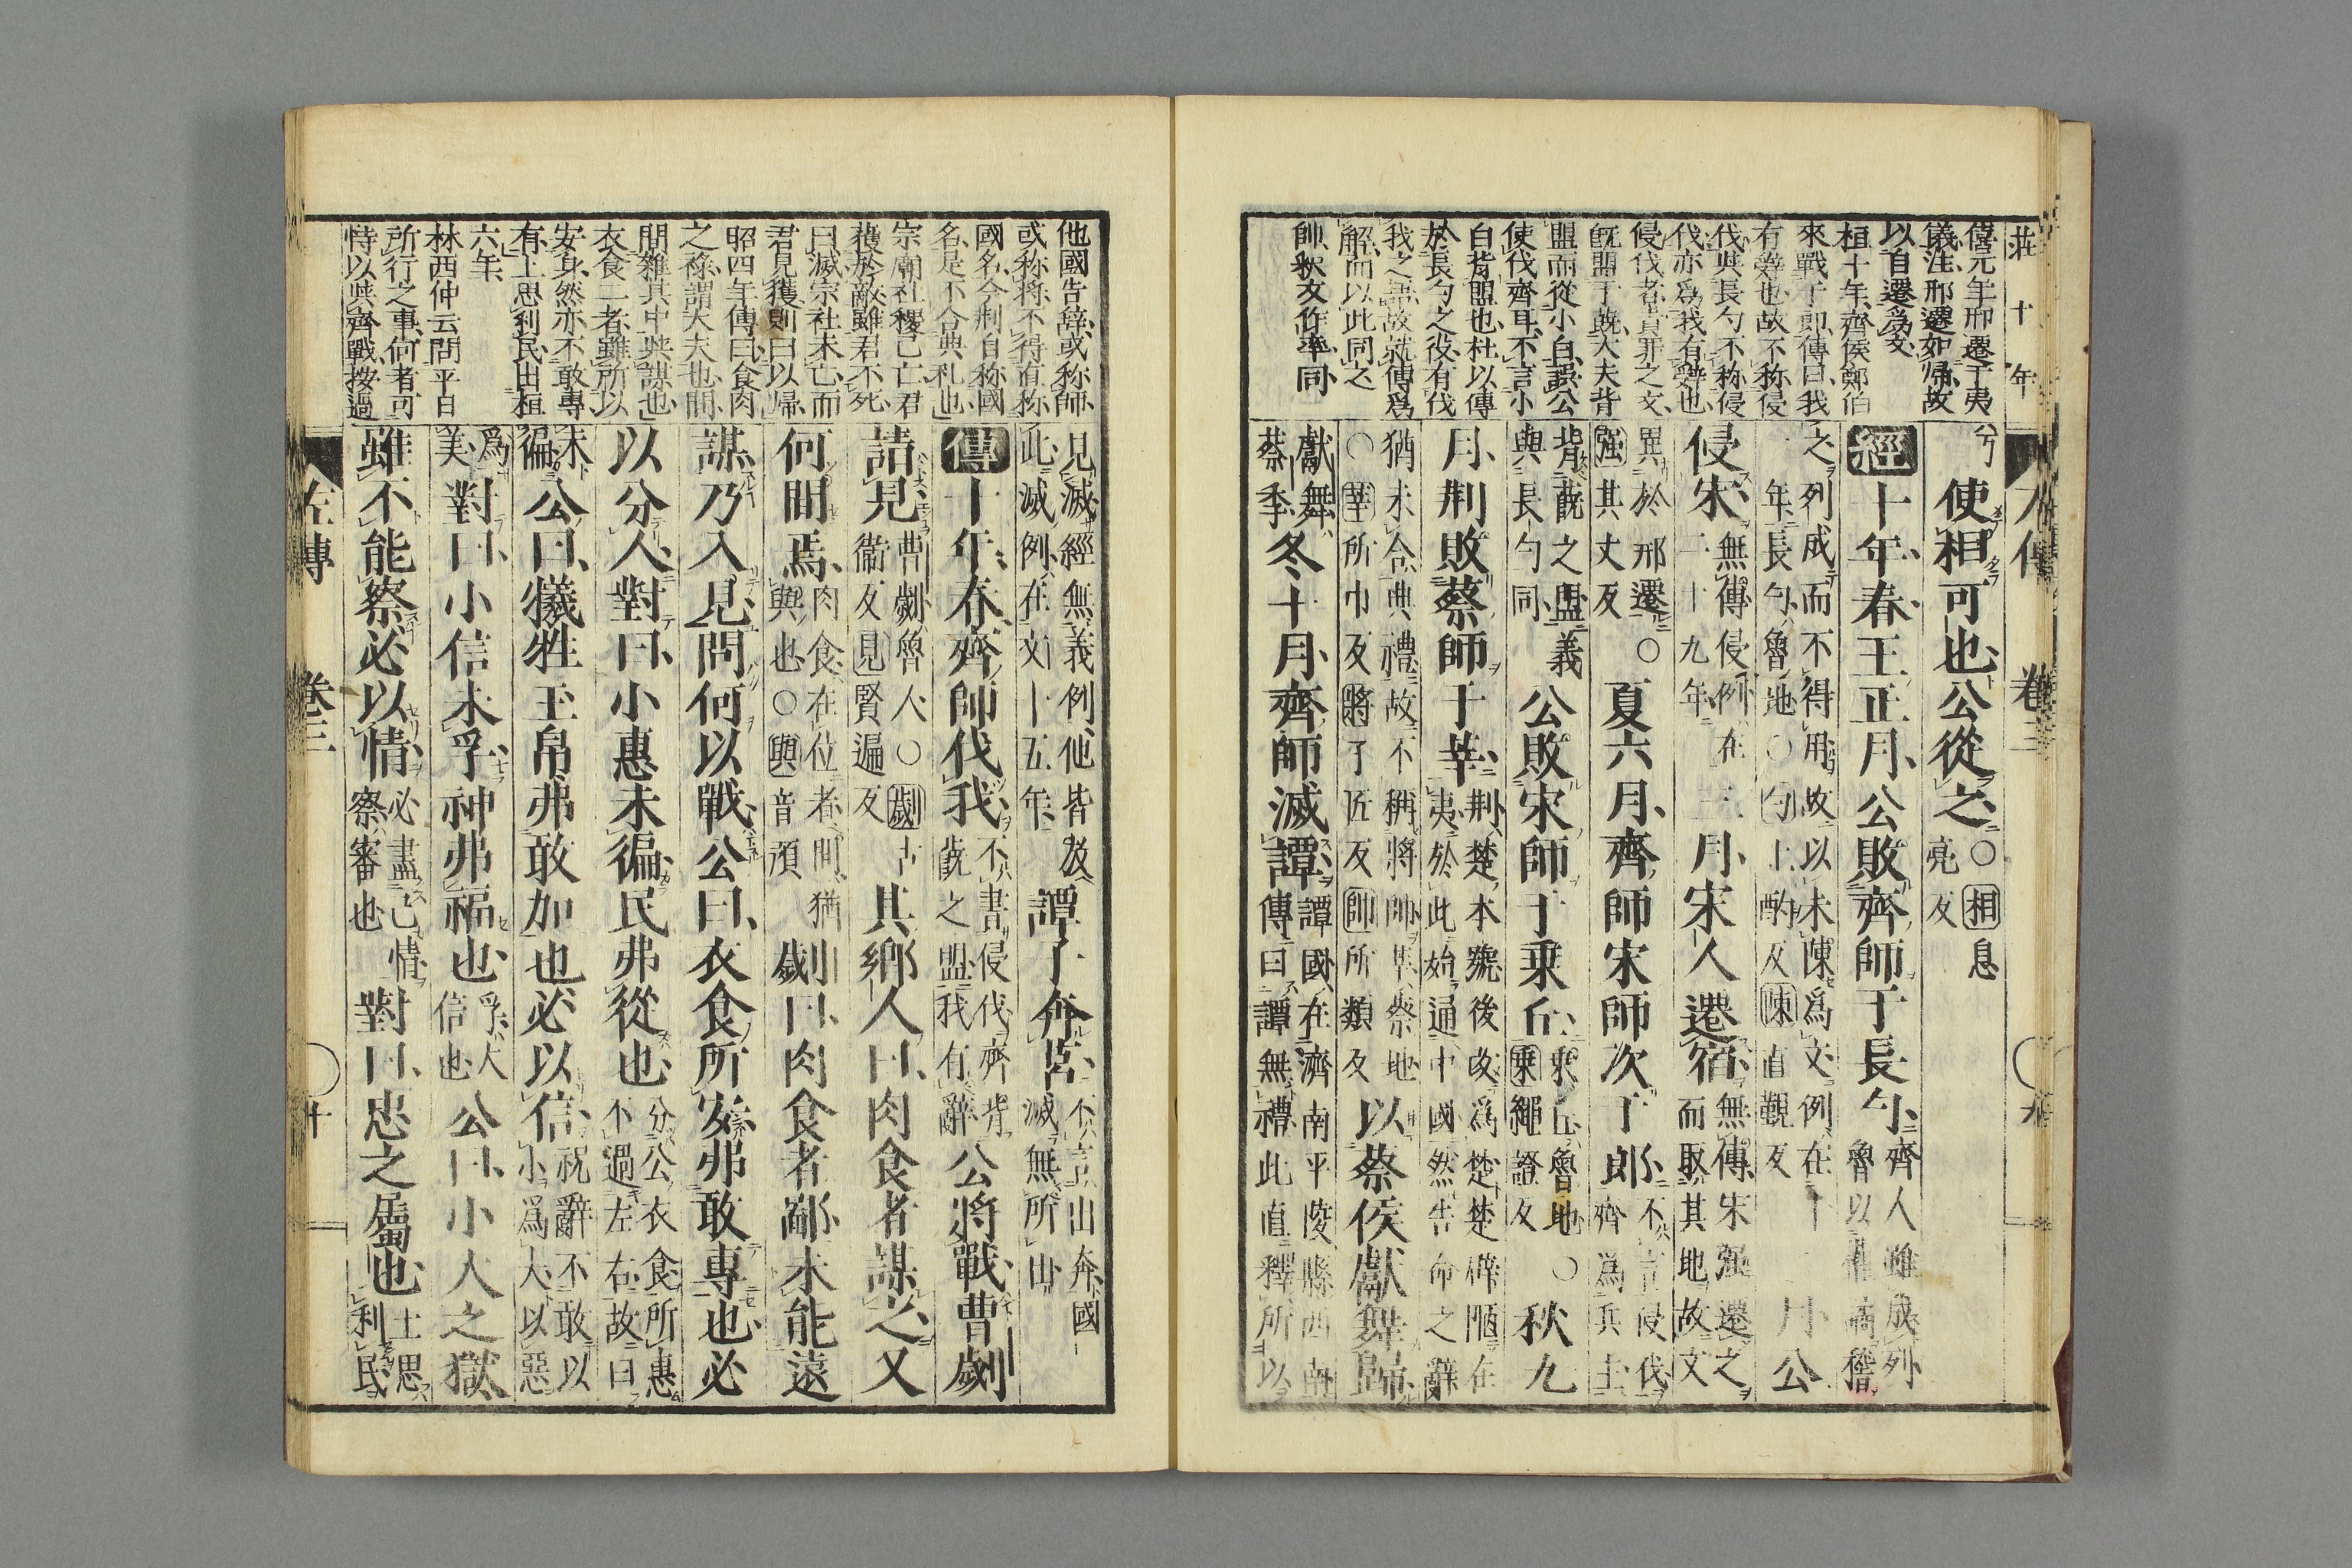 莊十年
僖元年邢遷于夷
儀注邢遷如歸故
以自遷爲文
桓十年齊侯鄭伯
來戰于郎傳曰我
有辭也故不称侵
伐與長勺不称侵
伐亦爲我有辭也
侵伐者責罪之文
既盟于蔇大夫背
盟而從小白誤公
使伐齊耳不言小
白背盟也杜以傳
於長勺之役有伐
我之語故就傳爲
解而以此同之
帥釈文作率同
左傳 卷三 ○ 九
兮使相可也公從之○相息
亮反
經十年春王正月公敗齊師于長勺齊人雖成列
魯以權譎稽
之列成而不得用故以未陳爲文例在十
一年長勺魯地○勺上酌反陳直覲反
二月公
侵宋無傳侵例在
二十九年
三月宋人遷宿無傳宋强遷之
而取其地故文
異於邢遷○
强其丈反
夏六月齊師宋師次于郎不言侵伐
齊爲兵主
背蔇之盟義
與長勺同
公敗宋師于乗丘乗丘魯地○
乗繩證反
秋九
月荆敗蔡師于莘荆楚本號後改爲楚楚僻陋在
夷於此始通中國然告命之辭
猶未合典禮故不稱將帥莘蔡地
○莘所巾反將子匠反帥所類反
以蔡侯獻舞歸
獻舞
蔡季
冬十月齊師滅譚譚國在濟南平陵縣西南
傳曰譚無禮此直釋所以
他國告辭或称師
或称将不得有称
國名今荆自称國
名是不合典礼也
宗廟社稷已亡君
獲於敵雖君不死
曰滅宗社未亡而
君見獲則曰以歸
昭四年傳曰食肉
之祿謂大夫也間
間雜其中與謀也
衣食二者雖所以
安身然亦不敢專
有上思利民出桓
六年
林西仲云問平日
所行之事何者可
恃以與齊戰按過
見滅經無義例他皆放
此滅例在文十五年
譚子奔莒不言出奔國
滅無所出
傳十年春齊師伐我不書侵伐齊背
蔇之盟我有辭
公將戰曹劌
請見曹劌魯人○劌古
衞反見賢遍反
其鄉人曰肉食者謀之又
何間焉肉食在位者間猶
與也○與音預
劌曰肉食者鄙未能遠
謀乃入見問何以戰公曰衣食所安弗敢專也必
以分人對曰小惠未徧民弗從也分公衣食所惠
不過左右故曰
未
徧
公曰犧牲玉帛弗敢加也必以信祝辭不敢以
小爲大以惡
爲
美
對曰小信未孚神弗福也孚大
信也
公曰小大之獄
雖不能察必以情必盡己情
察審也
對曰忠之屬也上思
利民
左傳 卷三 ○ 十